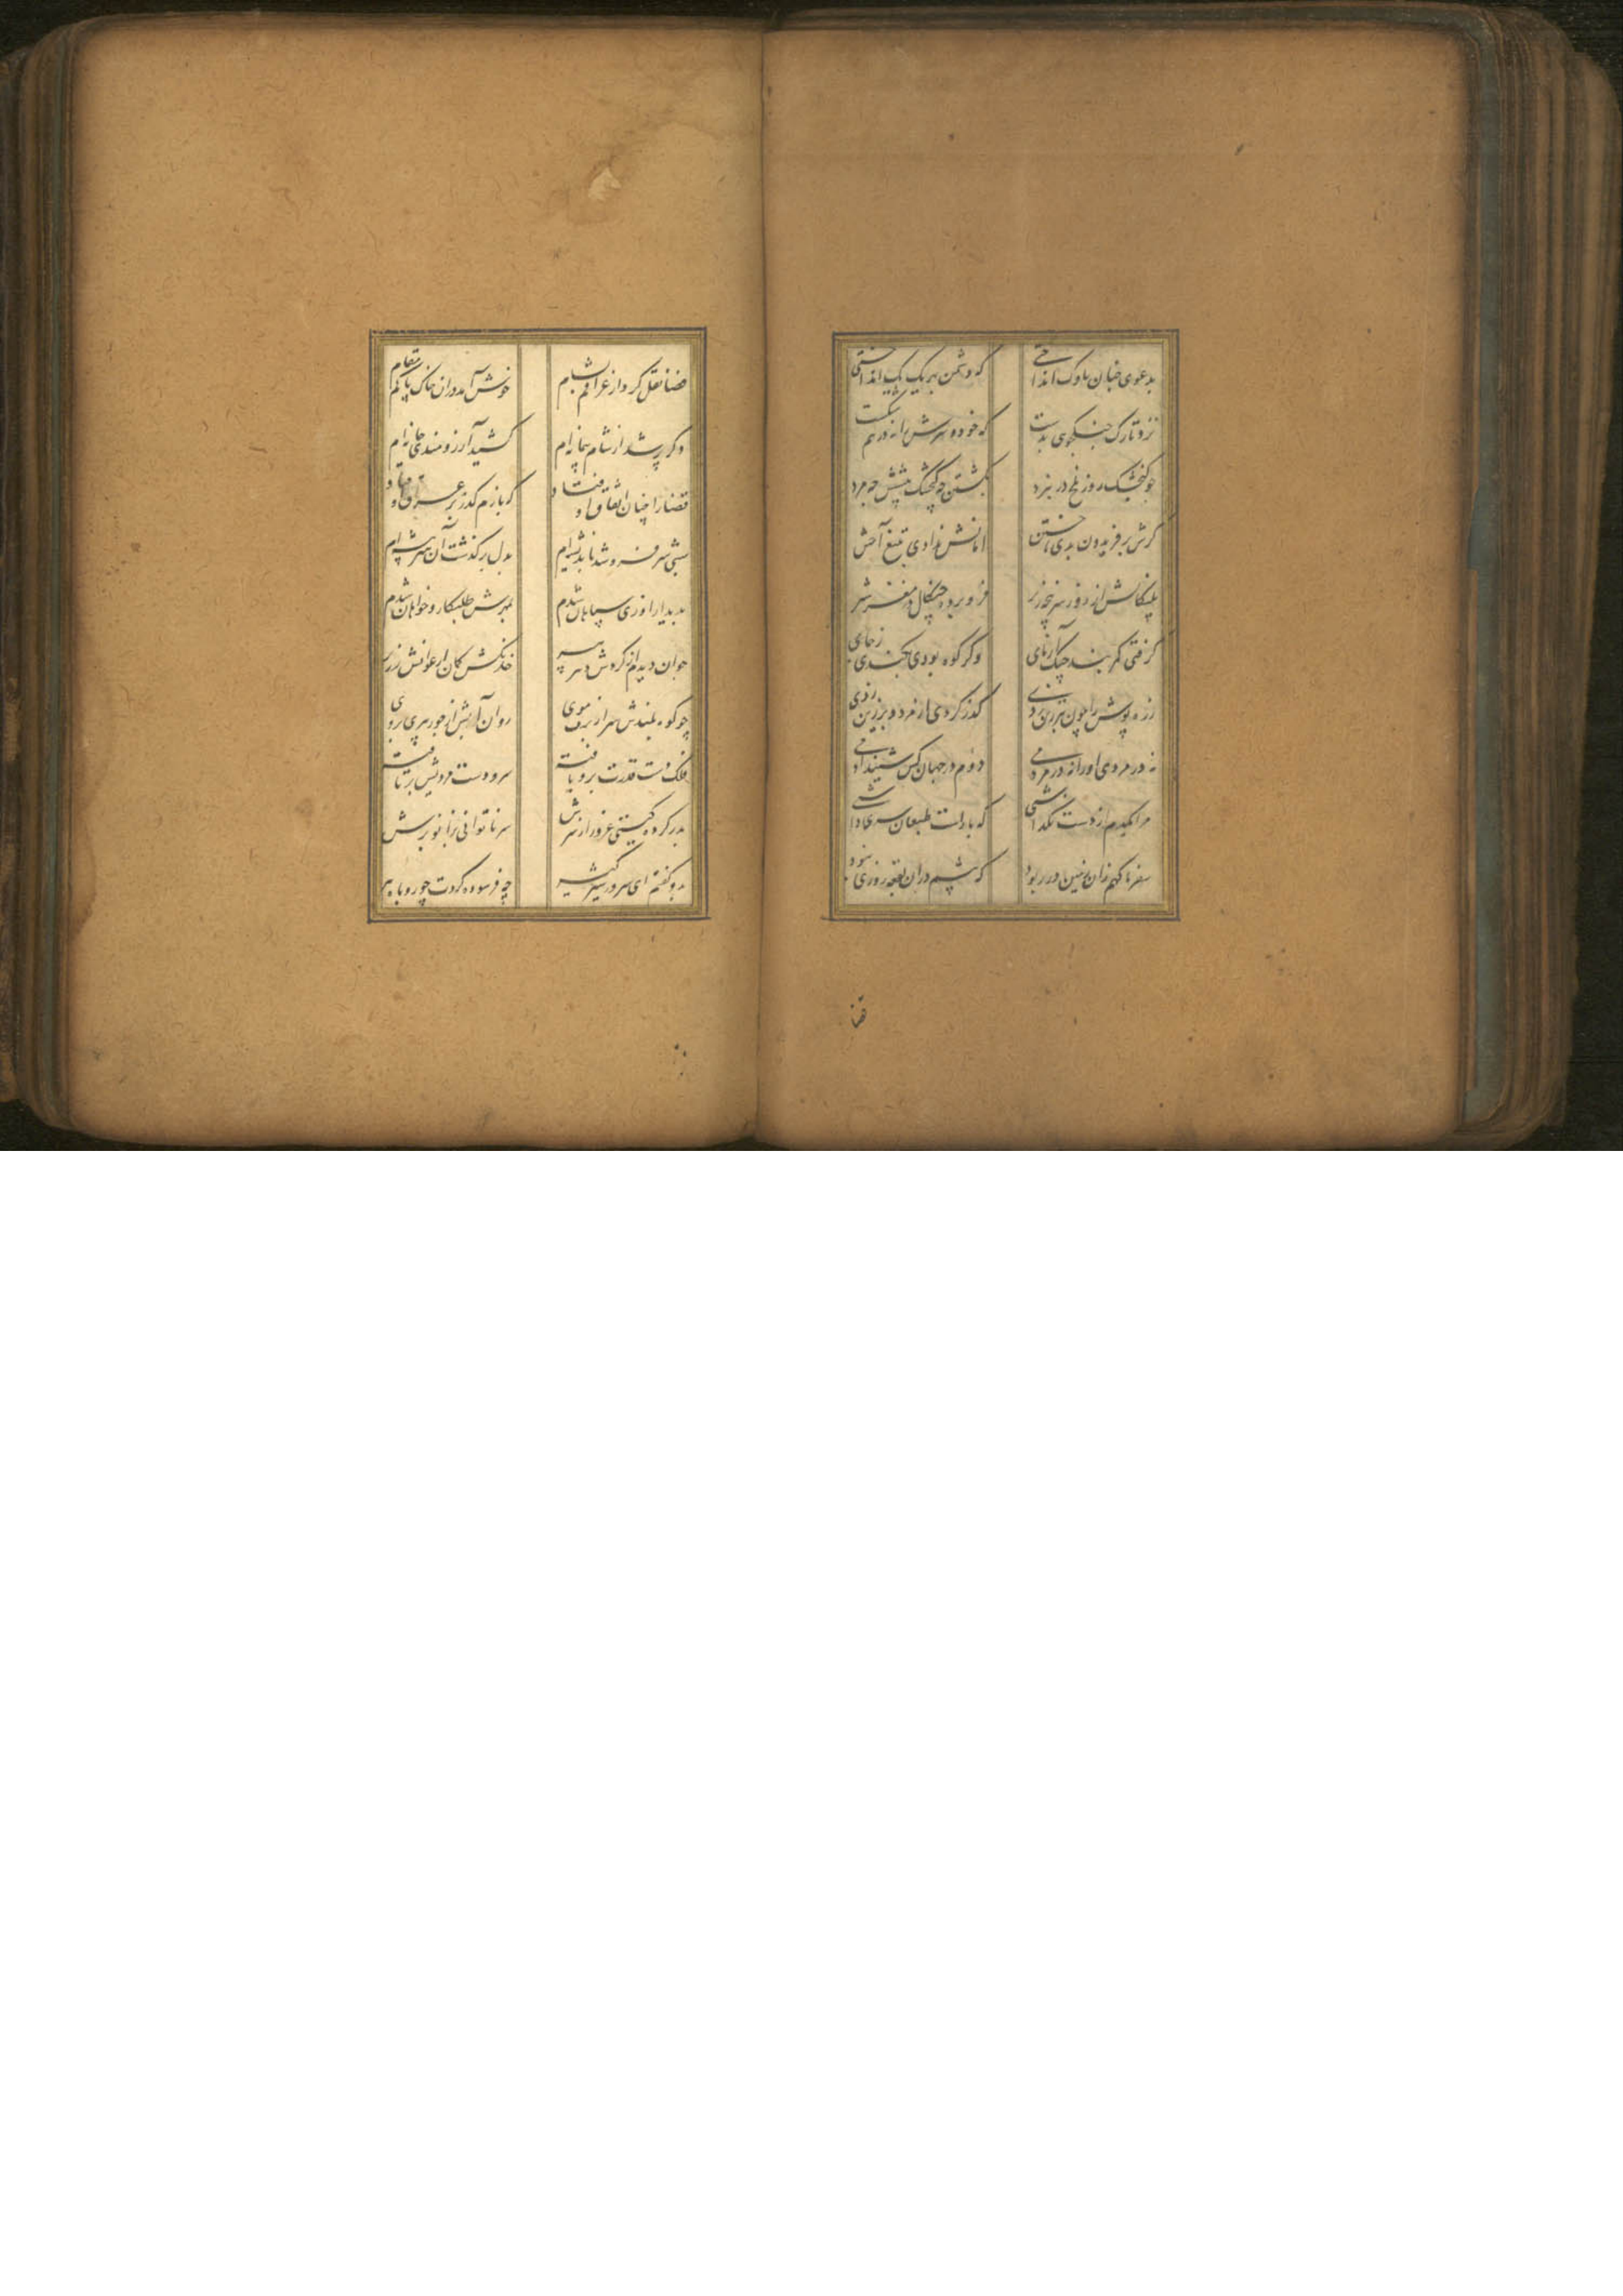 بدعوی چنان ناوک انداختی که دشمن بهر یک یک انداختی
نزد تارک جنگجوی بدست که خود و سرش را نه درهم شکست
چو گنجشک روز ملخ در نبرد بکشتن چه گنجشک پیشش چه مرد
گرش بر فریدون بدی تاختن امانش ندادی بتیغ آختن
پلنگانش از زور سرپنجه زیر فرو برده چنگال در مغز شیر
گرفتی کمربند جنگ آزمای وگر کوه بودی بکندی ز جای
زره پوش را چون تبرزین زدی گذر کردی از مرد و بر زین زدی
نه در مردی او را نه در مردمی دوم در جهان کس شنید آدمی
مرا یکدم از دست نگذاشتی که با راست طبعان سری داشتی
سفر ناگهم زان زمین در ربود که بیشم در ان بقعه روزی نبود
قضا
قضا نقل کرد از عراقم بشام خوش آمد در ان خاک پاکم مقام
دگر پر شد از شام پیمانه ام کشید آرزومندی خانه ام
قضا را چنان اتفاق اوفتاد که بازم گذر بر عراق اوفتاد
شبی سر فرو شد باندیشه ام بدل بر گذشت آن هنر پیشه ام
بدیدار او زی سپاهان شدم بمهرش طلبکار و خواهان شدم
جوان دیدم از گردش دهر پیر خدنگش کمان ارغوانش زریر
چو کوه بلندش سر از برف موی روان آبش از جور پیری بروی
فلک دست قدرت برو یافته سر دست مردیش بر تافته
بدر کرده گیتی غرور از سرش سر ناتوانی بزانو برش
بدو گفتم ای سرور شیر گیر چه فرسوده کردت چو روباه پیر